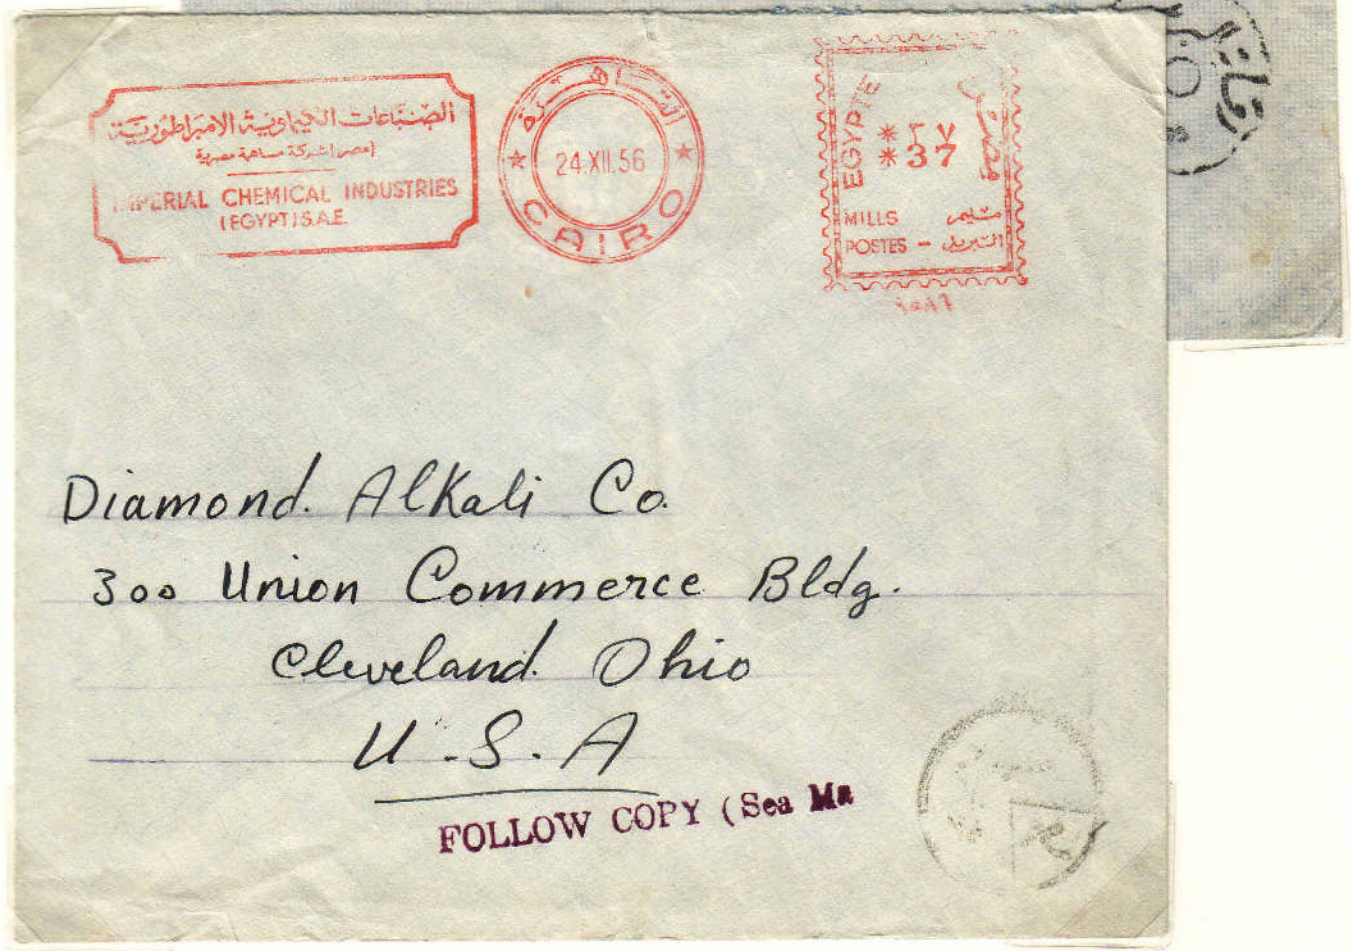 الصناعات الكيماوية الامبراطورية
(مصر) شركة مساهمة مصرية
IMPERIAL CHEMICAL INDUSTRIES
(EGYPT) S.A.E.
القاهرة
24.XII.56
CAIRO
EGYPTE
مصر
*37
MILLS مليم
POSTES - البريد
Diamond Alkali Co.
300 Union Commerce Bldg.
Cleveland Ohio
U.S.A
FOLLOW COPY (Sea Ma